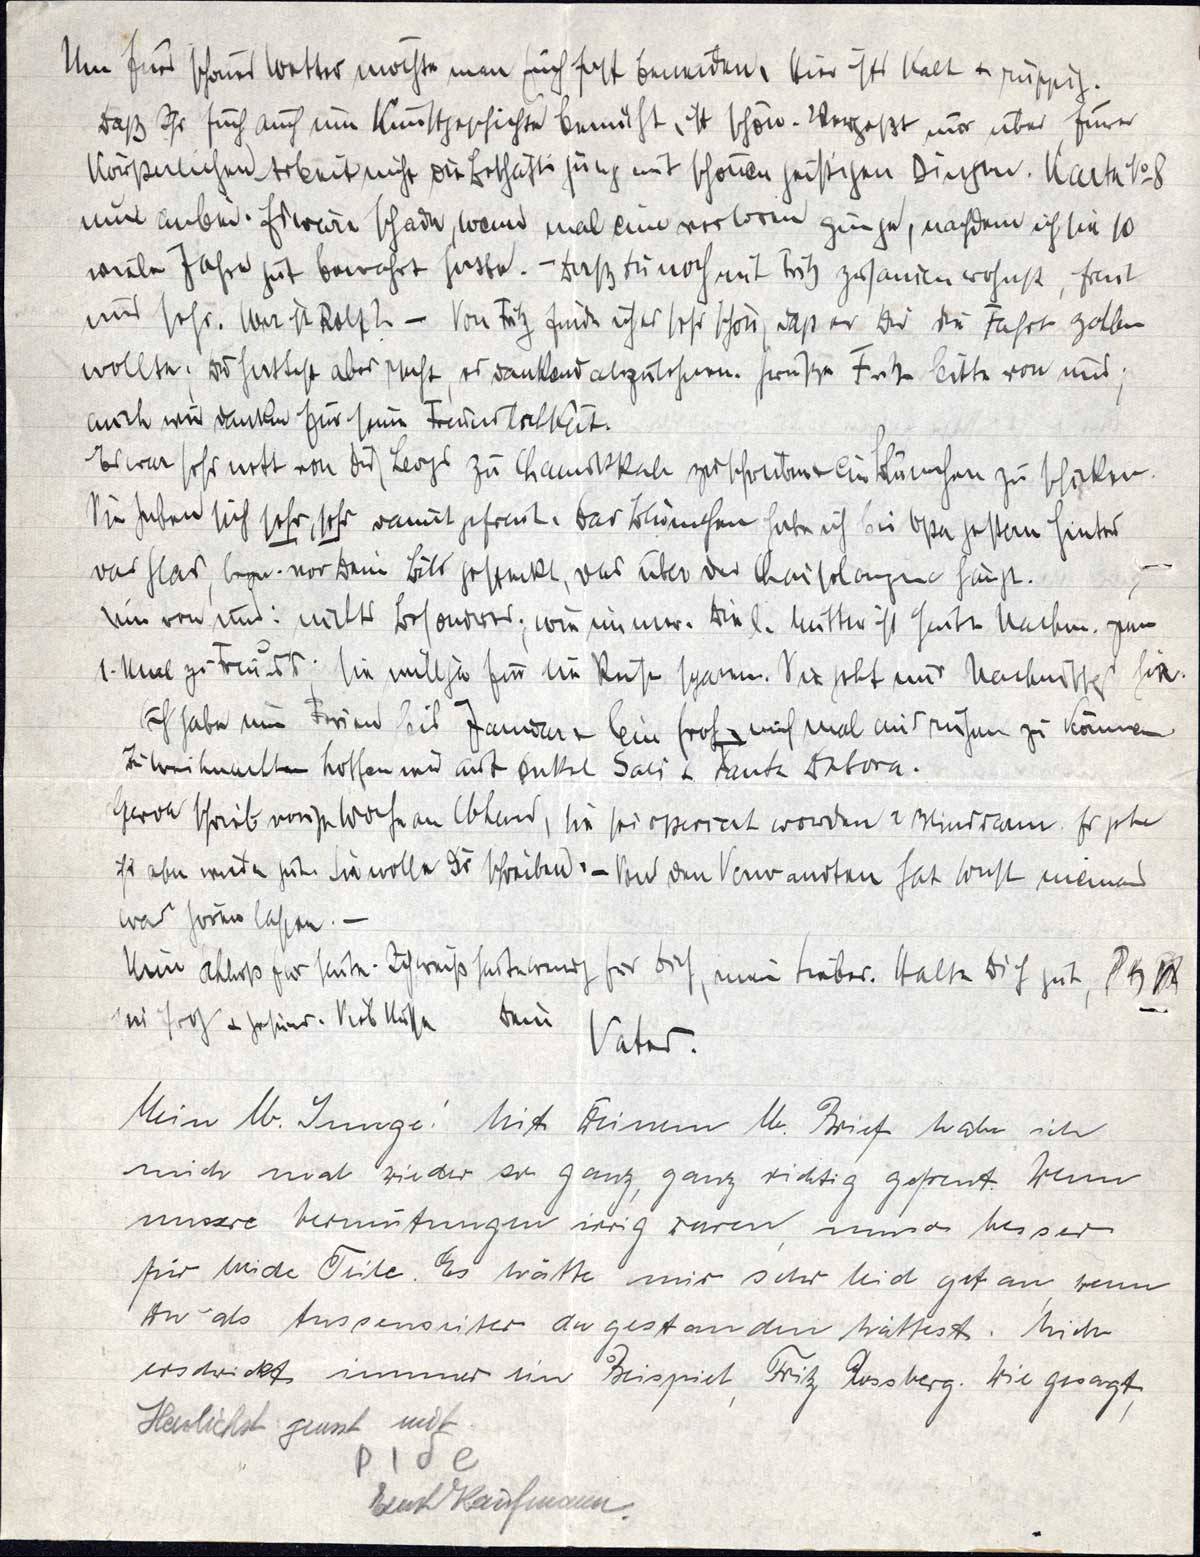 Um Euer schönes Wetter möchte man Euch fast beneiden. Hier ists kalt +
Daß Ihr Euch auch um Kunstgeschichte bemüht, ist schön. Vergeßt nur über Eurer
körperlichen Arbeit nicht die Beschäftigung mit schönen geistigen Dingen. Karte No 8
nun anbei. Es wäre schade, wenn mal eine verloren ginge, nachdem ich sie so
viele Jahre gut bewahrt hatte. – Daß Du noch mit Fritz zusammen wohnst, freut
uns sehr. Wer ist Rolf? – Von Fritz finde ich es sehr schön, daß er Dir die Fahrt zahlen
wollte; Du hattest aber recht, es dankend abzulehnen. Grüße Fritz bitte von uns;
auch wir danken für seine Freundlichkeit.
Es war sehr nett von Dir, zu Chanukkah zu schreiben + ein Blümchen zu schicken.
Sie haben sich sehr, sehr damit gefreut. Das Blümchen habe ich bei Opa gestern hinter
das Glas, bezw. vor Dein Bild gesteckt, das über der Chaiselongue hängt.
Nun von uns: nichts Besonderes, wie immer. Die l. Mutter ist heute Nachm. zum
1. Mal zu Sie will ja für die Reise sparen. Sie geht nur Nachmittags hin.
Ich habe nun Ferien bis Januar + bin froh, mich mal ausruhen zu können
Zu Weihnachten hoffen wir auf Onkel Sali + Tante Debora.
schrieb vorige Woche an, sie sei operiert worden Es gehe
ihr aber wieder gut. Sie wolle Dir schreiben. – Von den Verwandten hat sonst niemand
was hören lassen. –
Nun Schluß für heute. Ich weiß heute wenig für Dich, mein Lieber. Halte Dich gut,
sei froh + gesund. Viele Küsse Dein
Vater.
Mein lb. Junge! Mit Deinem lb. Brief habe ich
mich mal wieder so ganz, ganz richtig gefreut. Wenn
unsere Vermutungen irrig waren, umso besser
für beide Teile. Es hätte mir sehr leid getan, wenn
Du als Aussenseiter dagestanden hättest. Mich
erschrickt immer ein Beispiel, Fritz Rossberg. Wie gesagt,
Herzlichst grüsst mit
Kaufmann.